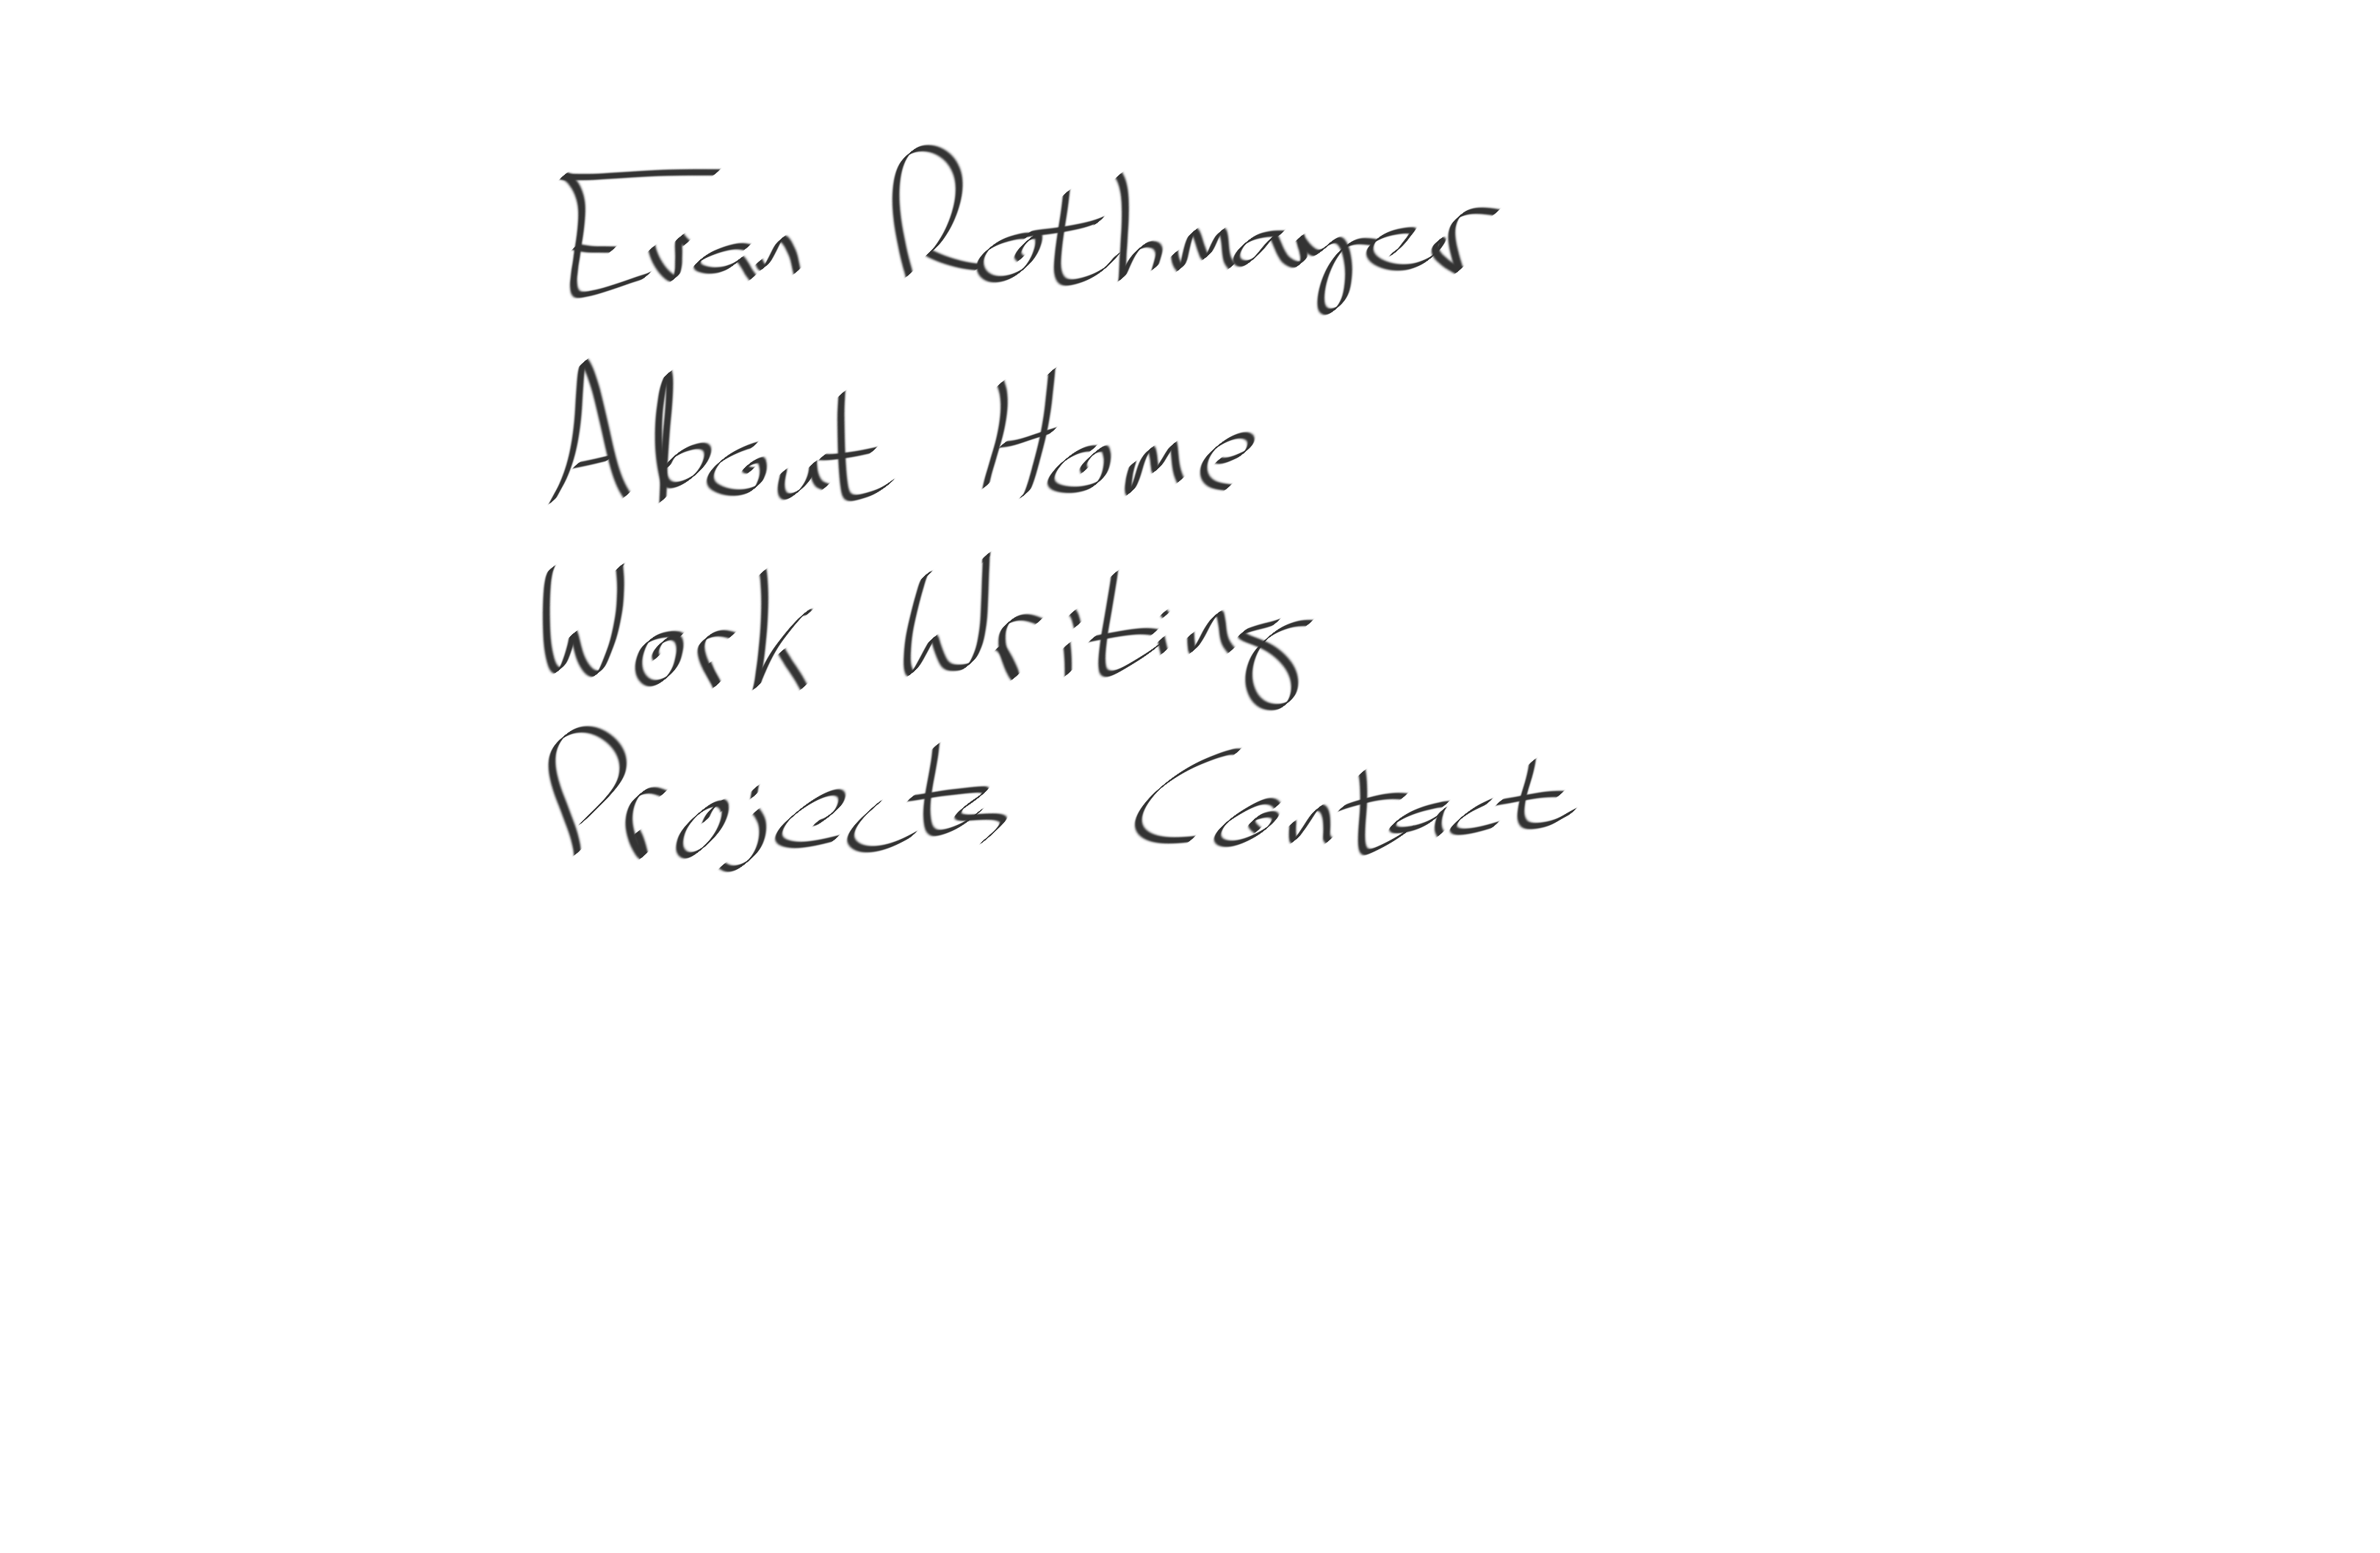 Evan Rothmayer
About Home
Work Writing
Projects Contact